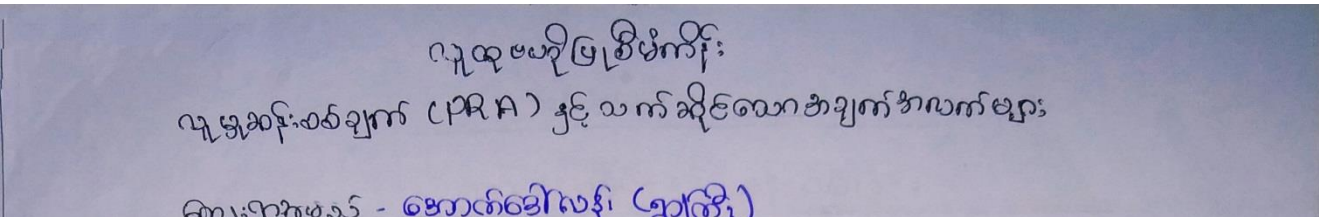 လူထုဗဟိုပြုစီမံကိန်း
လူမှုဆန်းစစ်ချက် (PRA) နှင့်သက်ဆိုင်သောအချက်အလက်များ
ကျေးရွာအမည် - အောက်ခေါ်လန်း (ရွာကြီး)